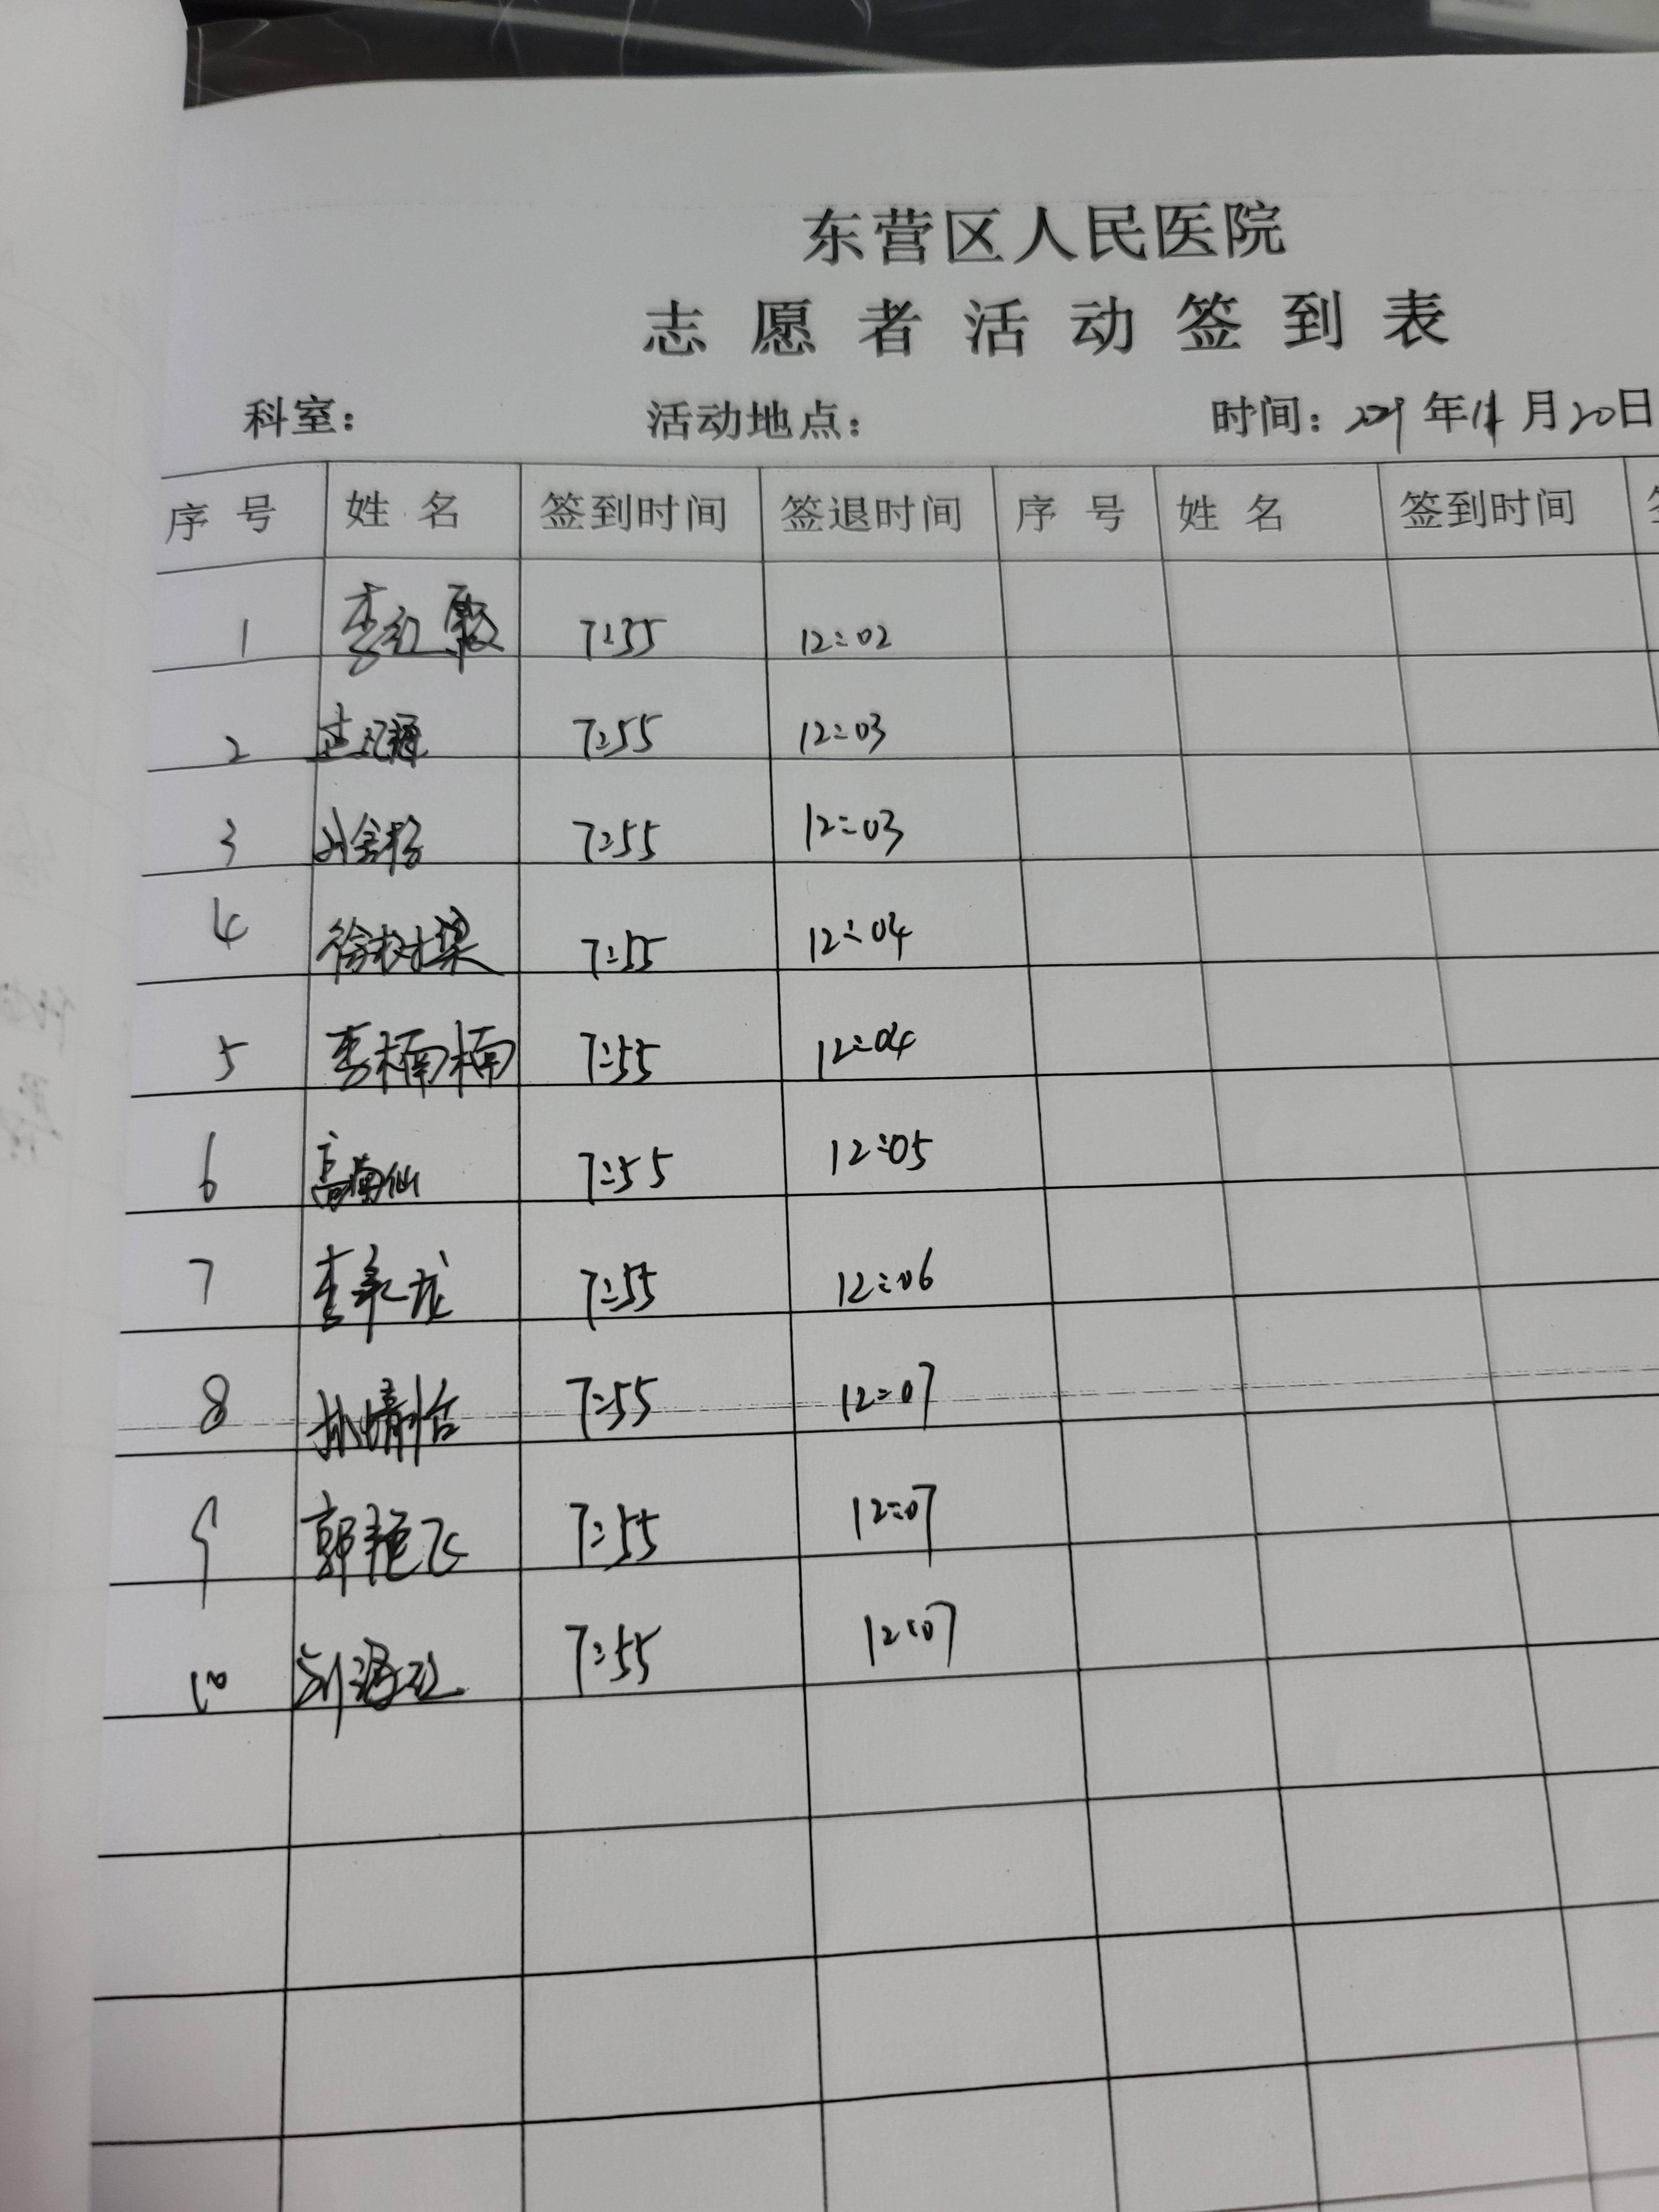 东营区人民医院
志愿者活动签到表
科室： 活动地点： 时间： 年 月20日
序号 姓名 签到时间 签退时间 序号 姓名 签到时间
1 李红 7:55 12:02
2 7:55 12:03
3 7:55 12:03
4 徐树梁 7:55 12:04
5 李楠楠 7:55 12:04
6 高 仙 7:55 12:05
7 李永龙 7:55 12:06
8 孙婧怡 7:55 12:07
9 郭艳飞 7:55 12:07
10 刘 7:55 12:07